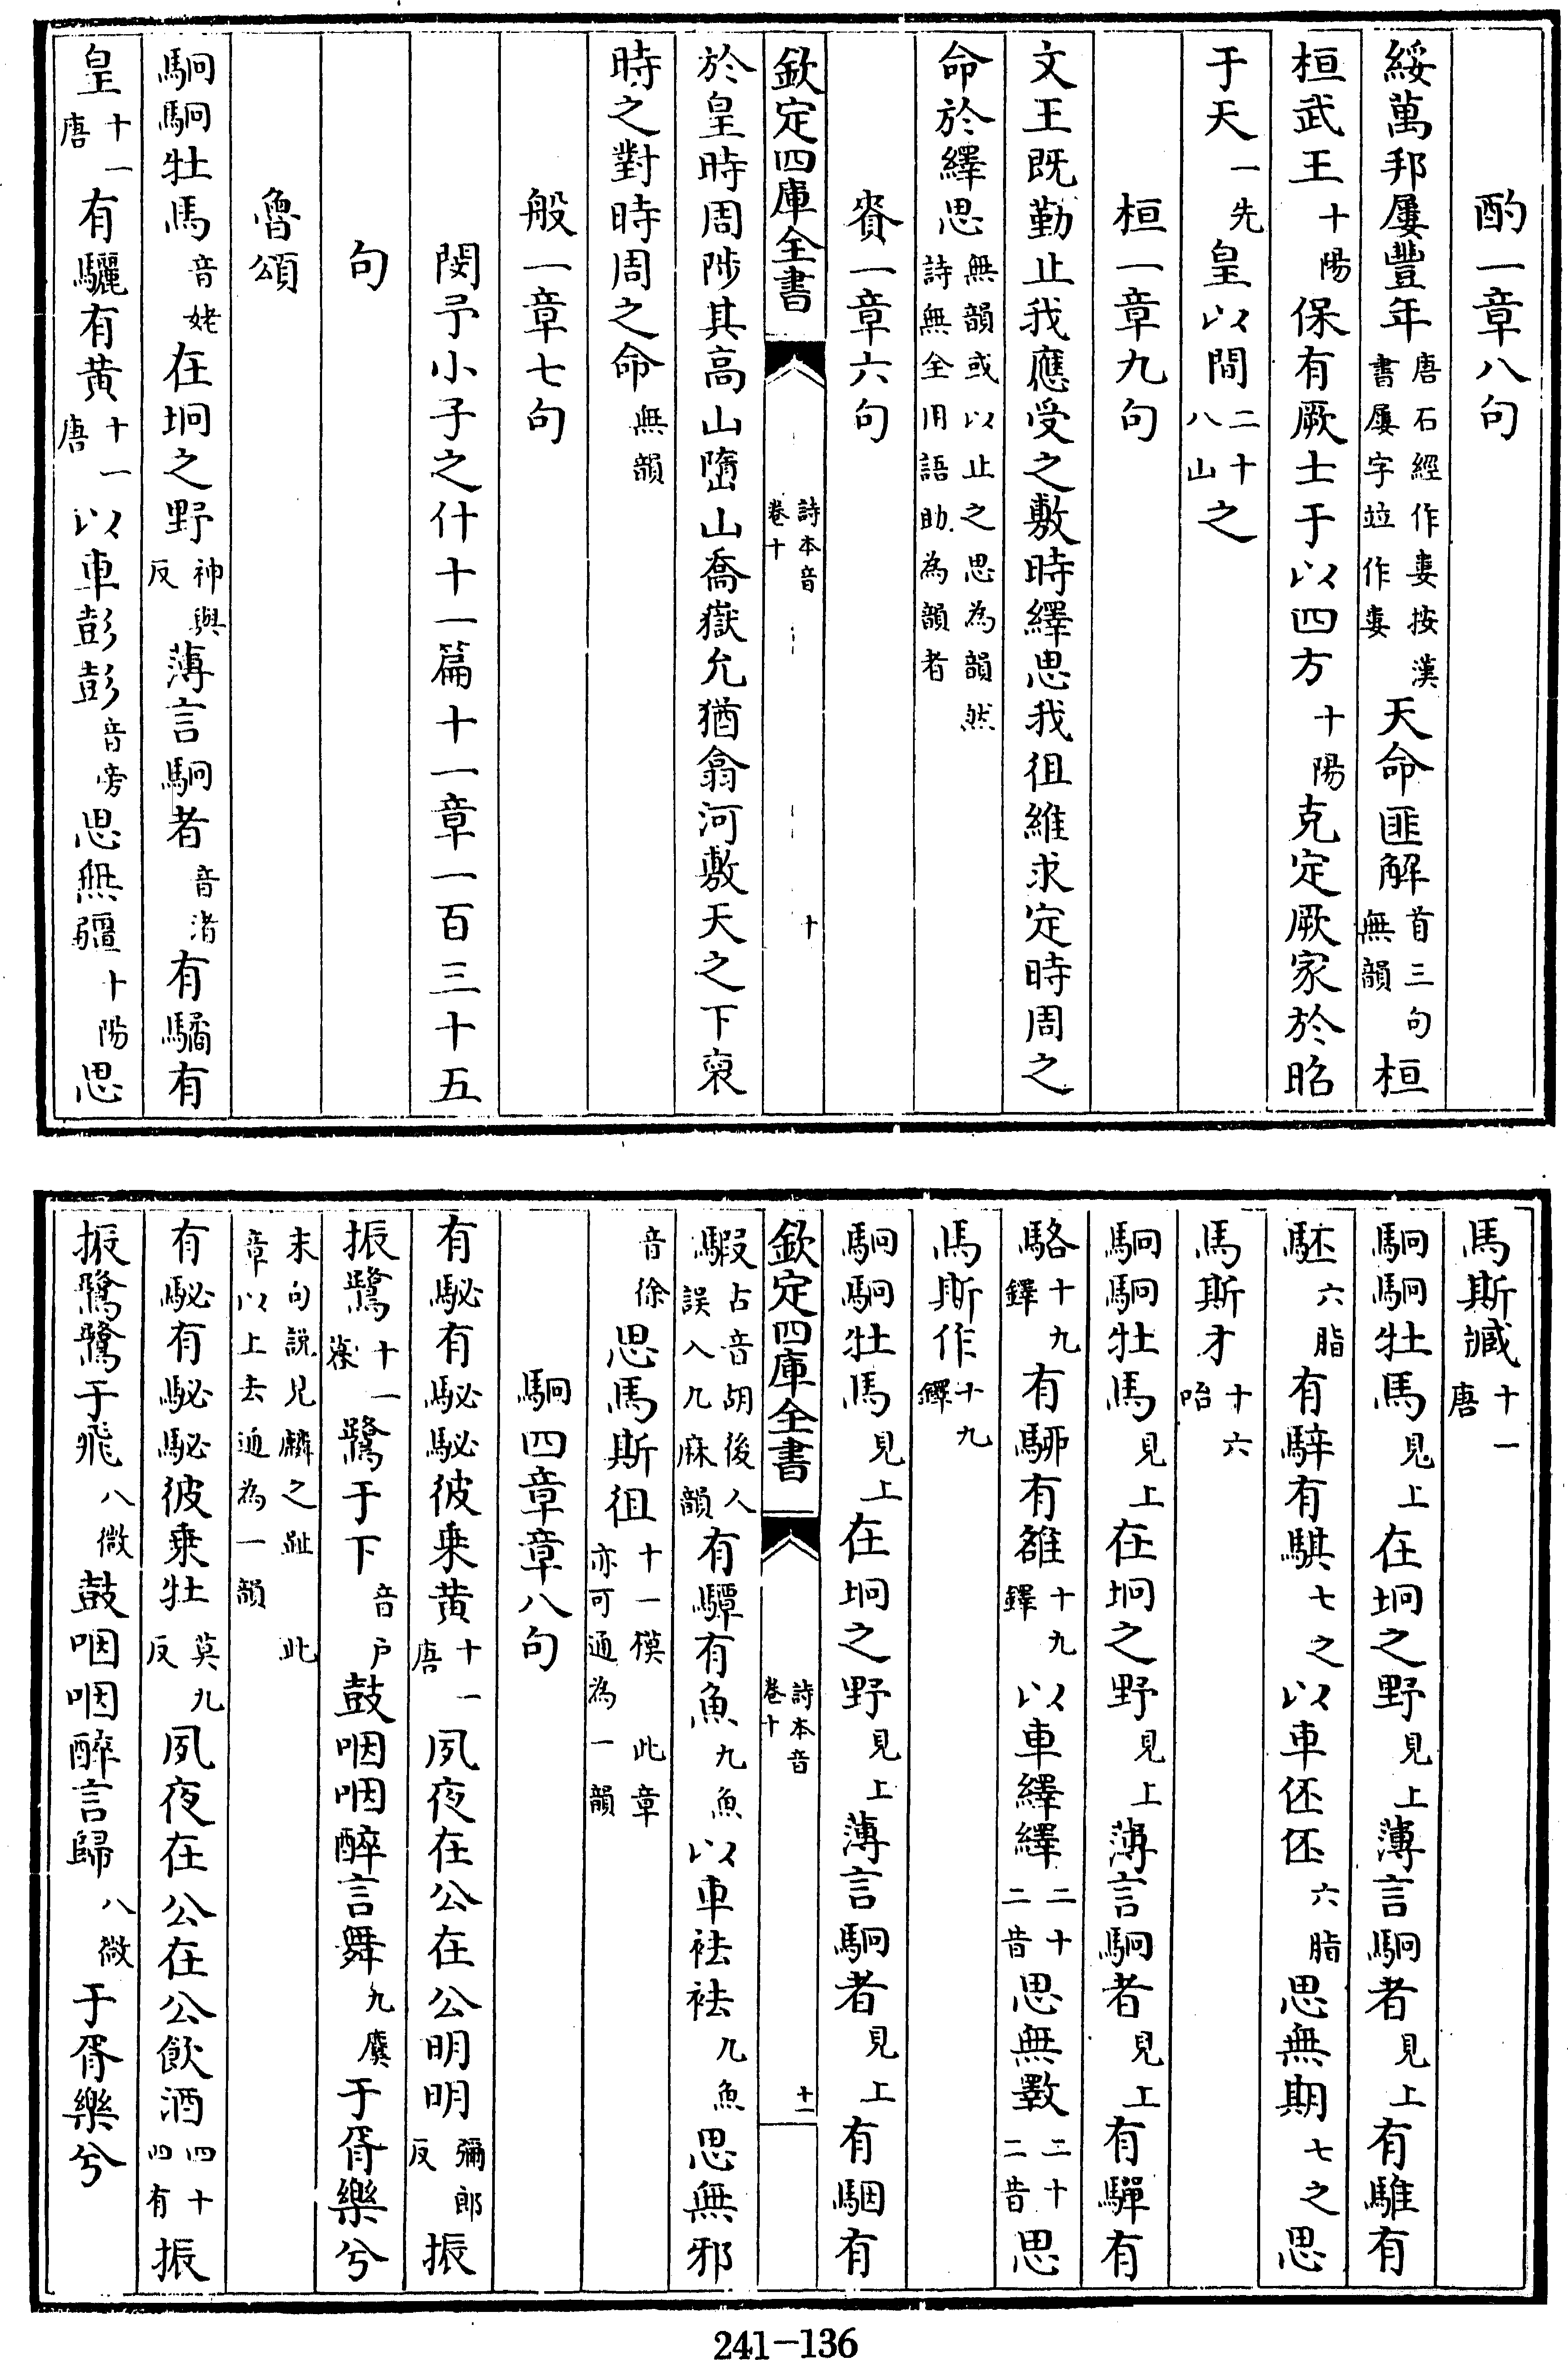 酌一章八句
綏萬邦屢豐年唐石經作婁按漢書屢字竝作婁天命匪解首三句無韻桓
桓武王十陽保有厥士于以四方十陽克定厥家於昭
于天一先皇以間二十八山之
桓一章九句
文王既勤止我應受之敷時繹思我徂維求定時周之
命於繹思無韻或以止之思為韻然詩無全用語助為韻者
賚一章六句
欽定四庫全書 詩本音卷十 十
於皇時周陟其高山墮山喬嶽允猶翕河敷天之下裒
時之對時周之命無韻
般一章七句
閔予小子之什十一篇十一章一百三十五
句
魯頌
駉駉牡馬音姥在坰之野神與反薄言駉者音渚有驈有
皇十一唐有驪有黄十一唐以車彭彭音旁思無疆十陽思
馬斯臧十一唐
駉駉牡馬見上在坰之野見上薄言駉者見上有騅有
駓六脂有騂有騏七之以車伾伾六脂思無期七之思
馬斯才十六咍
駉駉牡馬見上在坰之野見上薄言駉者見上有驒有
駱十九鐸有駵有雒十九鐸以車繹繹二十二昔思無斁二十二昔思
馬斯作十九鐸
駉駉牡馬見上在坰之野見上薄言駉者見上有駰有
欽定四庫全書 詩本音卷十 十一
騢古音胡後人誤入九麻韻有驔有魚九魚以車祛祛九魚思無邪
音徐思馬斯徂十一模此章亦可通為一韻
駉四章章八句
有駜有駜駜彼乘黄十一唐夙夜在公在公明明彌郎反振
振鷺十一莫鷺于下音戶鼓咽咽醉言舞九麌于胥樂兮
末句說見麟之趾此章以上去通為一韻
有駜有駜駜彼乘牡莫九反夙夜在公在公飲酒四十四有振
振鷺鷺于飛八微鼓咽咽醉言歸八微于胥樂兮
241-136